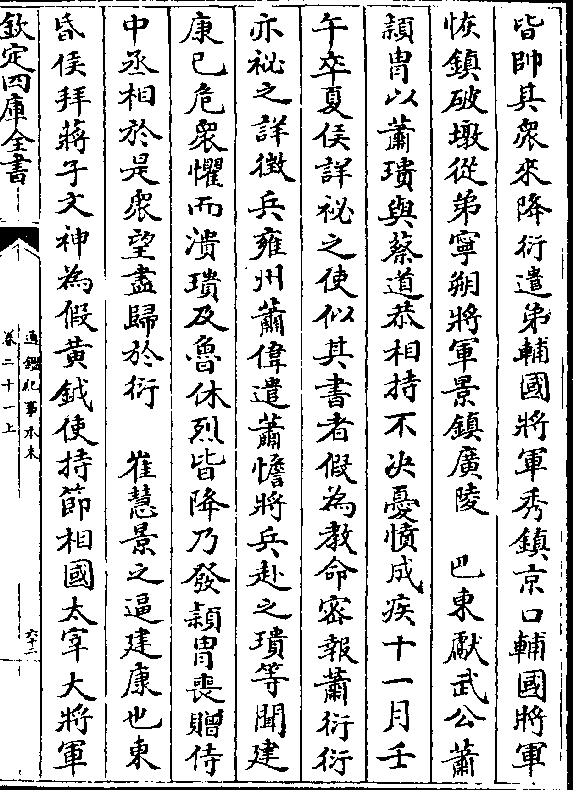 皆帥其衆來降衍遣弟輔國將軍秀鎮京口輔國將軍
恢鎮破墩從弟寧朔將軍景鎮廣陵　巴東獻武公蕭
頴胄以蕭璝與蔡道恭相持不决憂憤成疾十一月壬
午卒夏侯詳祕之使似其書者假為教命密報蕭衍衍
亦祕之詳徴兵雍州蕭偉遣蕭憺將兵赴之璝等聞建
康已危衆懼而潰璝及魯休烈皆降乃發頴胄喪贈侍
中丞相於是衆望盡歸於衍　崔慧景之逼建康也東
昏侯拜蔣子文神為假黄鉞使持節相國太宰大將軍
欽定四庫全書
通鑑紀事本末
卷二十一上
六十二